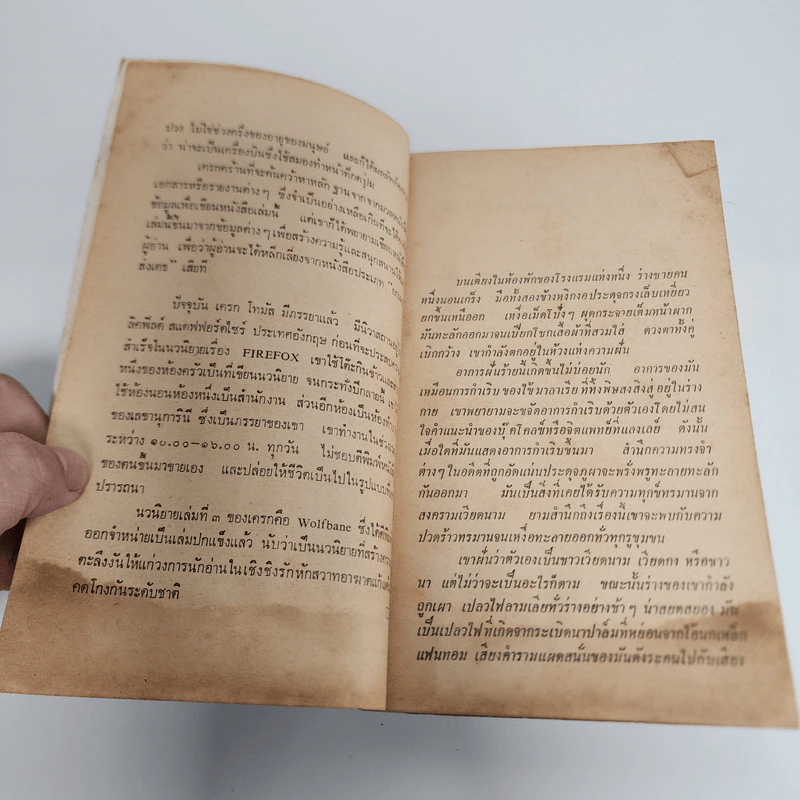 ปวง ไม่ใช่ช่วงครึ่งของอายุของมนุษย์ และก็ได้
ว่า น่าจะเป็นเครื่องบินซึ่งใช้สมองทำหน้าที่ครุ่น
เครกคร้านที่จะค้นคว้าหาหลัก ฐานจาก
เอกสารหรือรายงานต่างๆ ซึ่งจำเป็นอย่างเหลือเกินที่จะ
ข้อมูลเพื่อเขียนหนังสือเล่มนี้ แต่เขาก็ได้พยายาม
เล่มนี้ขึ้นมาจากข้อมูลต่างๆ เพื่อสร้างความรู้และสนุกสนาน
ผู้อ่าน เพื่อว่าผู้อ่านจะได้หลีกเลี่ยงจากหนังสือประเภท
ส่งเดช" เสียที
ปัจจุบัน เครก โทมัส มีภรรยาแล้ว มีนิวาสถาน
ลิคฟีลด์ สแตฟฟอร์ดไชร์ ประเทศอังกฤษ ก่อนที่จะประสบ
สำเร็จในนวนิยายเรื่อง FIREFOX เขาใช้โต๊ะกินข้าว
หนึ่งของห้องครัวเป็นที่เขียนนวนิยาย จนกระทั่งปีกลายนี้
ใช้ห้องนอนห้องหนึ่งเป็นสำนักงาน ส่วนอีกห้องเป็นห้อง
ของเลขานุการินี ซึ่งเป็นภรรยาของเขา เขาทำงานใน
ระหว่าง ๑๐.๐๐-๑๖.๐๐ น. ทุกวัน ไม่ชอบตีพิมพ์
ของตนขึ้นมาขายเอง และปล่อยให้ชีวิตเป็นไปในรูปแบบ
ปรารถนา
นวนิยายเล่มที่ ๓ ของเครกคือ Wolfbane ซึ่งได้
ออกจำหน่ายเป็นเล่มปกแข็งแล้ว นับว่าเป็นนวนิยายที่สร้าง
ตะลึงงันให้แก่วงการนักอ่านในเชิงชิงรักหักสวาทอาฆาต
คดโกงกันระดับชาติ
บนเตียงในห้องพักของโรงแรมแห่งหนึ่ง ร่างชายคน
หนึ่งนอนเกร็ง มือทั้งสองข้างหงิกงอประดุจกรงเล็บเหยี่ยว
ยกขึ้นเหนืออก เหงื่อเม็ดโป้งๆ ผุดกระจายเต็มหน้าผาก
มันทะลักออกมาจนเปียกโชกเสื้อผ้าที่สวมใส่ ดวงตาทั้งคู่
เบิกกว้าง เขากำลังตกอยู่ในห้วงแห่งความฝัน
อาการฝันร้ายนี้เกิดขึ้นไม่บ่อยนัก อาการของมัน
เหมือนการกำเริบ ของไข้ มาลาเรีย ที่ทิ้งพิษสงสิงสู่ อยู่ในร่าง
กาย เขาพยายามจะขจัดอาการกำเริบด้วยตัวเองโดยไม่สน
ใจคำแนะนำของบุ๊คโคลซ์หรือจิตแพทย์ที่แลงเลย์ ดังนั้น
เมื่อใดที่มันแสดงอาการกำเริบขึ้นมา สำนึกความทรงจำ
ต่างๆ ในอดีตที่ถูกอัดแน่นประดุจภูผาจะพรั่งพรูทะลายทะลัก
กันออกมา มันเป็นสิ่งที่เคยได้รับความทุกข์ทรมานจาก
สงครามเวียดนาม ยามสำนึกถึงเรื่องนี้เขาจะพบกับความ
ปวดร้าวทรมานจนเหงื่อทะลายออกทั่วทุกรูขุมขน
เขาฝันว่าตัวเองเป็นชาวเวียดนาม เวียดกง หรือชาว
นา แต่ไม่ว่าจะเป็นอะไรก็ตาม ขณะนั้นร่างของเขากำลัง
ถูกเผา เปลวไฟลามเลียทั่วร่างอย่างช้าๆ น่าสยดสยอง มัน
เป็นเปลวไฟที่เกิดจากระเบิดนาปาล์มที่หย่อนจากไอ้นกเหล็ก
แฟนทอม เสียงคำรามแผดสนั่นของมันดังระคนไปกับเสียง